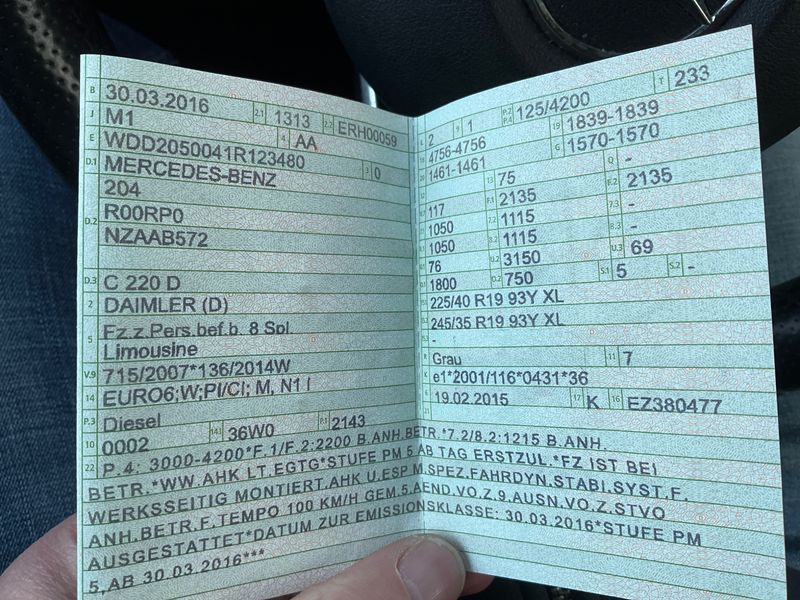 B 30.03.2016 2.1 1313 2.2 ERH00059
J M1 4 AA
E WDD2050041R123480 3 0
D.1 MERCEDES-BENZ
204
D.2 R00RP0
NZAAB572
D.3 C 220 D
2 DAIMLER (D)
5 Fz.z.Pers.bef.b. 8 Spl
Limousine
V.9 715/2007*136/2014W
14 EURO6;W;PI/CI; M, N1 I
P.3 Diesel
10 0002 14.1 36W0 P.1 2143
L 2 9 1 P.2 P.4 125/4200 T 233
18 4756-4756 19 1839-1839
20 1461-1461 G 1570-1570
13 75 Q -
117 F.1 2135 F.2 2135
1050 7.2 1115 7.3 -
1050 8.2 1115 8.3 -
76 U.2 3150 U.3 69
1800 O.2 750 S.1 5 S.2 -
225/40 R19 93Y XL
245/35 R19 93Y XL
-
R Grau 11 7
K e1*2001/116*0431*36
6 19.02.2015 17 K 16 EZ380477
21
22 P.4: 3000-4200*F.1/F.2:2200 B.ANH.BETR.*7.2/8.2:1215 B.ANH.
BETR.*WW.AHK LT.EGTG*STUFE PM 5 AB TAG ERSTZUL.*FZ IST BEI
WERKSSEITIG MONTIERT.AHK U.ESP M.SPEZ.FAHRDYN.STABI.SYST.F.
ANH.BETR.F.TEMPO 100 KM/H GEM.5.AEND.VO.Z.9.AUSN.VO.Z.STVO
AUSGESTATTET*DATUM ZUR EMISSIONSKLASSE: 30.03.2016*STUFE PM
5,AB 30.03.2016***